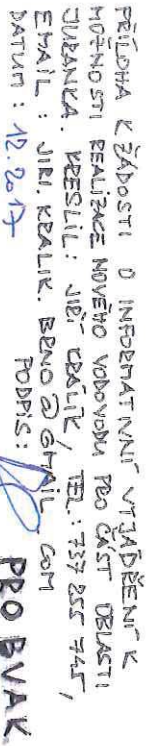 PŘÍLOHA K ŽÁDOSTI O INFORMATIVNÍ VYJÁDŘENÍ K
MOŽNOSTI REALIZACE NOVÉHO VODOVODU PRO ČÁST OBLASTI
JURANKA. KRESLIL: JIŘÍ KRÁLÍK, TEL: 737 255 745,
EMAIL: JIRI.KRALIK.BRNO@GMAIL.COM
DATUM: 12.2017 PODPIS:
PRO BVAK